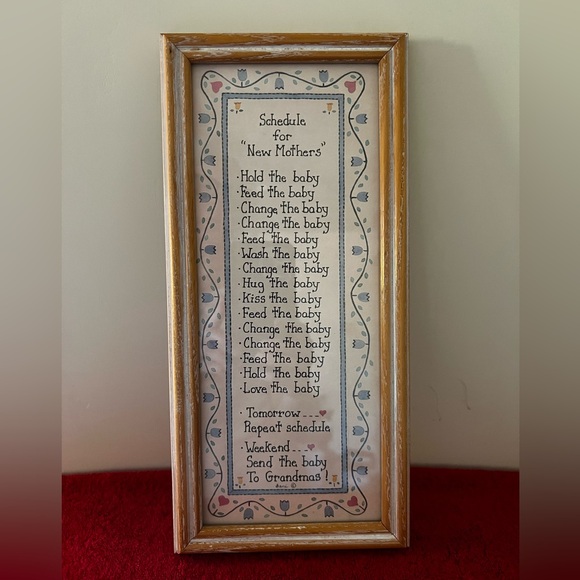 Schedule
for
"New Mothers"
· Hold the baby
· Feed the baby
· Change the baby
· Change the baby
· Feed the baby
· Wash the baby
· Change the baby
· Hug the baby
· Kiss the baby
· Feed the baby
· Change the baby
· Change the baby
· Feed the baby
· Hold the baby
· Love the baby
· Tomorrow___
Repeat schedule
· Weekend___
Send the baby
To Grandmas!
©